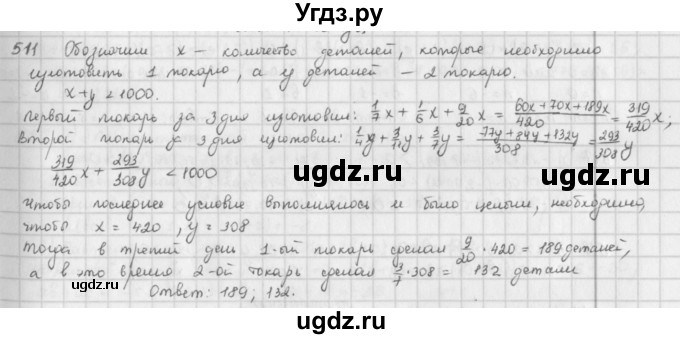 Угдз.ру
511 Обозначим x – количество деталей, которые необходимо
изготовить 1 токарю, а y деталей – 2 токарю.
x+y < 1000.
Первый токарь за 3 дня изготовил: 1/7 x + 1/6 x + 9/20 x = (60x+70x+189x)/420 = 319/420 x;
Второй токарь за 3 дня изготовил: 1/4 y + 3/11 y + 3/7 y = (77y+84y+132y)/308 = 293/308 y
319/420 x + 293/308 y < 1000
ugdz.ru ugdz.ru
Чтобы последнее условие выполнялось и было целым, необходимо,
чтобы x = 420, y = 308
Тогда в третий день 1-ый токарь сделал 9/20 · 420 = 189 деталей,
а в это время 2-ой токарь сделал 3/7 · 308 = 132 детали
Ответ: 189; 132.
ugdz.ru ugdz.ru